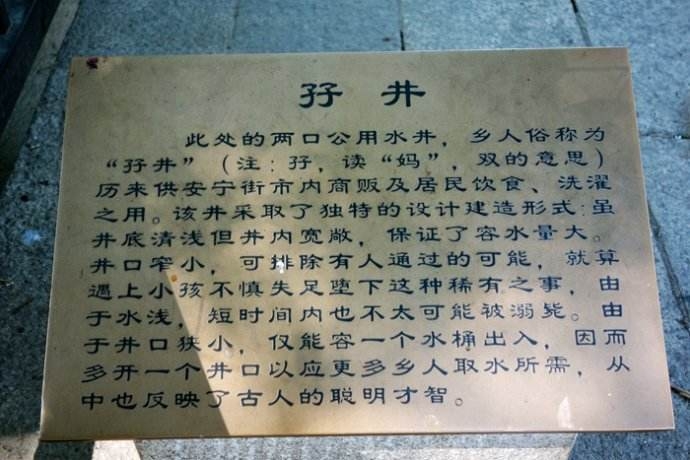 孖井
此处的两口公用水井，乡人俗称为
“孖井”（注：孖，读“妈”，双的意思）
历来供安宁街市内商贩及居民饮食、洗濯
之用。该井采取了独特的设计建造形式：虽
井底清浅但井内宽敞，保证了容水量大。
井口窄小，可排除有人通过的可能，就算
遇上小孩不慎失足堕下这种稀有之事，由
于水浅，短时间内也不太可能被溺毙。由
于井口狭小，仅能容一个水桶出入，因而
多开一个井口以应更多乡人取水所需，从
中也反映了古人的聪明才智。